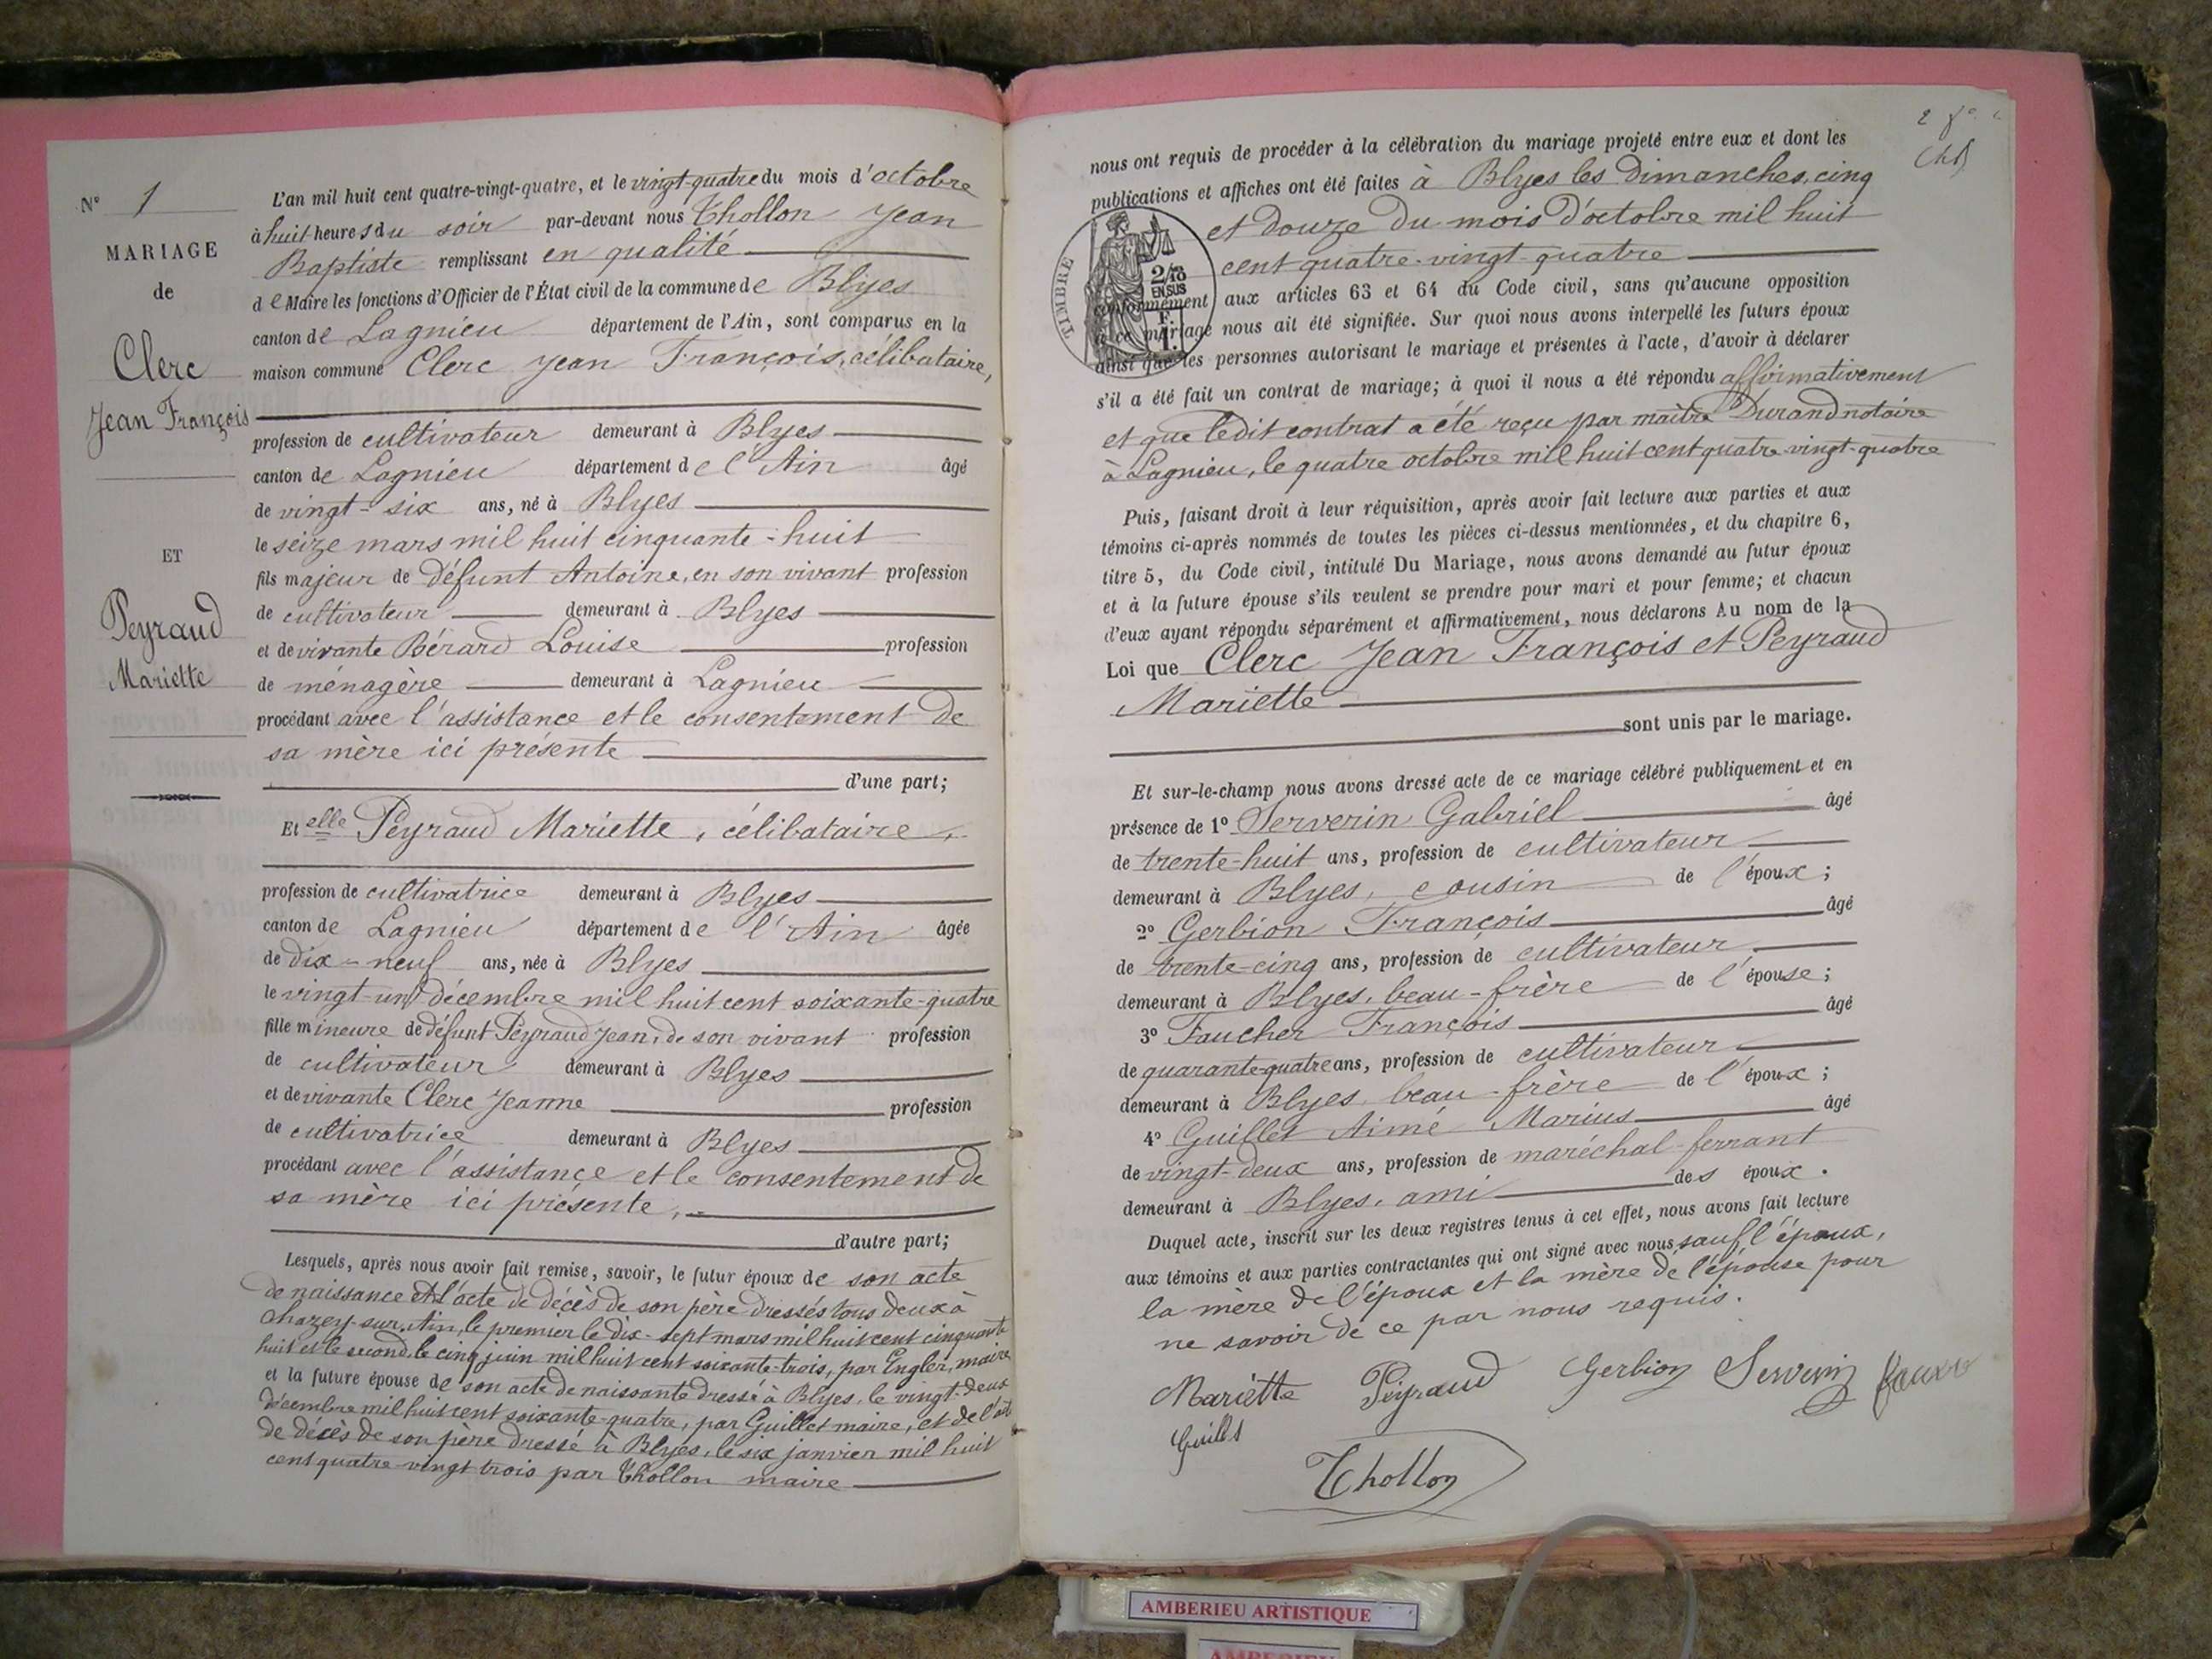 N° 1
MARIAGE
de
Clerc
Jean François
ET
Peyraud
Mariette
L'an mil huit cent quatre-vingt-quatre, et le vingt-quatre du mois d'octobre
à huit heures du soir par-devant nous Thollon Jean
Baptiste remplissant en qualité
de Maire les fonctions d'Officier de l'État civil de la commune de Blyes
canton de Lagnieu département de l'Ain, sont comparus en la
maison commune Clerc Jean François, célibataire,
profession de cultivateur demeurant à Blyes
canton de Lagnieu département de l'Ain âgé
de vingt-six ans, né à Blyes
le seize mars mil huit cinquante-huit
fils majeur de défunt Antoine, en son vivant profession
de cultivateur demeurant à Blyes
et de vivante Bérard Louise profession
de ménagère demeurant à Lagnieu
procédant avec l'assistance et le consentement de
sa mère ici présente
d'une part;
Et elle Peyraud Mariette, célibataire,
profession de cultivatrice demeurant à Blyes
canton de Lagnieu département de l'Ain âgée
de dix-neuf ans, née à Blyes
le vingt-un décembre mil huit cent soixante-quatre
fille mineure de défunt Peyraud Jean, de son vivant profession
de cultivateur demeurant à Blyes
et de vivante Clerc Jeanne profession
de cultivatrice demeurant à Blyes
procédant avec l'assistance et le consentement de
sa mère ici présente,
d'autre part;
Lesquels, après nous avoir fait remise, savoir, le futur époux de son acte
de naissance et l'acte de décès de son père dressés tous deux à
Chazey-sur-Ain, le premier le dix-sept mars mil huit cent cinquante
huit et le second, le cinq juin mil huit cent soixante-trois, par Engler, maire
et la future épouse de son acte de naissante dressé à Blyes, le vingt-deux
décembre mil huit cent soixante-quatre, par Guillet maire, et de l'acte
de décès de son père dressé à Blyes, le six janvier mil huit
cent quatre-vingt trois par Thollon maire
nous ont requis de procéder à la célébration du mariage projeté entre eux et dont les
publications et affiches ont été faites à Blyes les dimanches, cinq
et douze du mois d'octobre mil huit
cent quatre-vingt-quatre
TIMBRE
EN SUS
conformément aux articles 63 et 64 du Code civil, sans qu'aucune opposition
à ce mariage nous ait été signifiée. Sur quoi nous avons interpellé les futurs époux
ainsi que les personnes autorisant le mariage et présentes à l'acte, d'avoir à déclarer
s'il a été fait un contrat de mariage; à quoi il nous a été répondu affirmativement
et que ledit contrat a été reçu par maître Durand notaire
à Lagnieu, le quatre octobre mil huit cent quatre vingt-quatre
Puis, faisant droit à leur réquisition, après avoir fait lecture aux parties et aux
témoins ci-après nommés de toutes les pièces ci-dessus mentionnées, et du chapitre 6,
titre 5, du Code civil, intitulé Du Mariage, nous avons demandé au futur époux
et à la future épouse s'ils veulent se prendre pour mari et pour femme; et chacun
d'eux ayant répondu séparément et affirmativement, nous déclarons Au nom de la
Loi que Clerc Jean François et Peyraud
Mariette
sont unis par le mariage.
Et sur-le-champ nous avons dressé acte de ce mariage célébré publiquement et en
présence de 1° Serverin Gabriel âgé
de trente-huit ans, profession de cultivateur
demeurant à Blyes, cousin de l'époux;
2° Gerbion François âgé
de trente-cinq ans, profession de cultivateur
demeurant à Blyes, beau-frère de l'épouse;
3° Faucher François âgé
de quarante-quatre ans, profession de cultivateur
demeurant à Blyes, beau-frère de l'époux;
4° Guillet Aimé Marius âgé
de vingt-deux ans, profession de maréchal-ferrant
demeurant à Blyes, ami des époux.
Duquel acte, inscrit sur les deux registres tenus à cet effet, nous avons fait lecture
aux témoins et aux parties contractantes qui ont signé avec nous sauf l'époux,
la mère de l'époux et la mère de l'épouse pour
ne savoir de ce par nous requis.
Mariette Peyraud Gerbion Serverin
Guillet
Thollon
AMBERIEU ARTISTIQUE
AMBERIEU